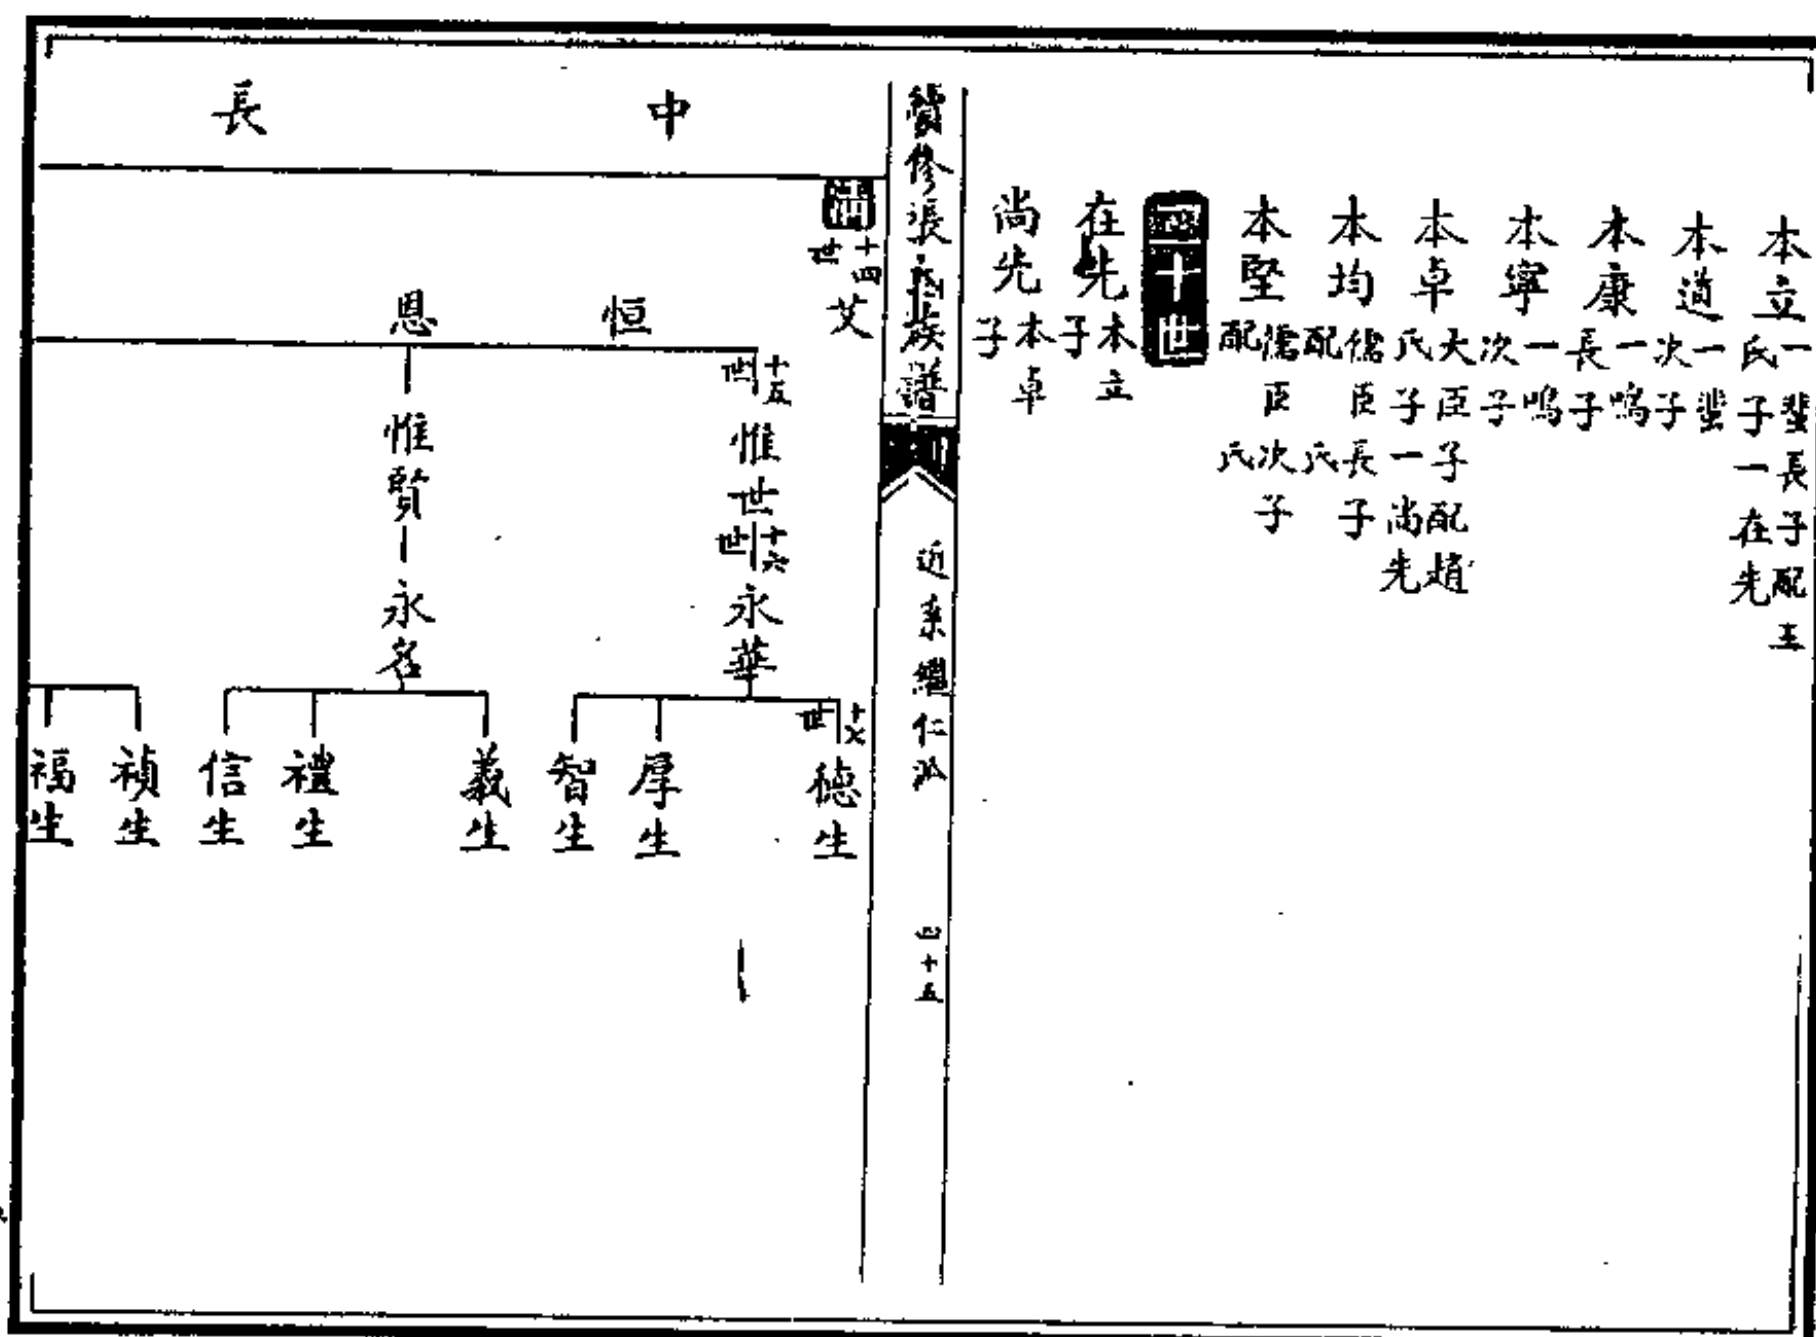 本立 一蜚長子配王氏子一在先
本道 一蜚次子
本康 一鳴長子
本寧 一鳴次子
本卓 大臣子配趙氏子一尚先
本均 儒臣長子配 氏
本堅 儒臣次子配 氏
十世
在先 本立子
尚先 本卓子
續修張氏族譜
近支繼仁派
四十五
中 長
十四世 艾
恒 恩
十五世 惟世 十六世 永華
惟賢 永名
世 德生
厚生
智生
義生
禮生
信生
禎生
福生